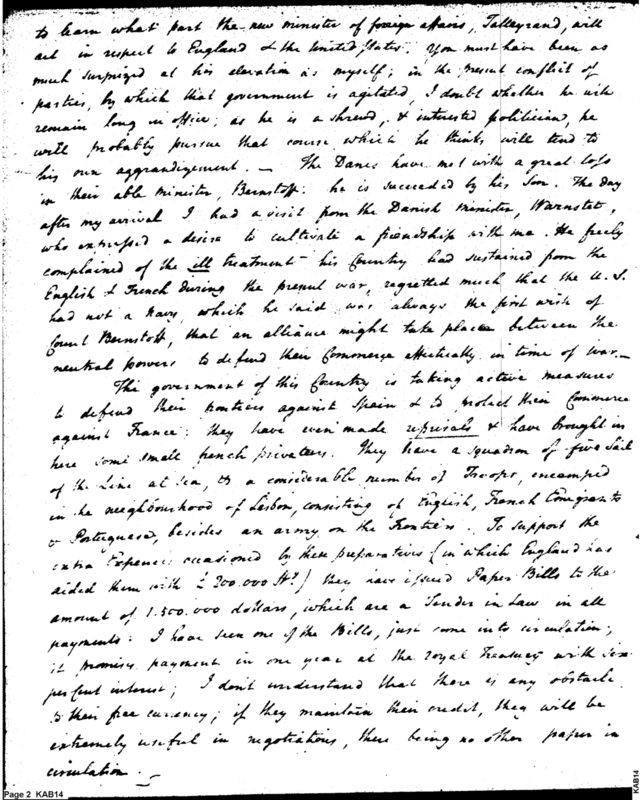 to learn what part the new minister of foreign affairs, Talleyrand, will
act in respect to England & the United States. You must have been as
much surprized at his elevation as myself; in the present conflict of
parties, by which that government is agitated, I doubt whether he will
remain long in office; as he is a shrewd, & interested politician, he
will probably pursue that course which he thinks will tend to
his own aggrandizement. — The Danes have met with a great loss
in their able minister, Bernstoff: he is succeeded by his Son. The day
after my arrival I had a visit from the Danish minister, Warnstet,
who expressed a desire to cultivate a friendship with me. He freely
complained of the ill treatment his Country had sustained from the
English & French during the present war, regretted much that the U.S.
had not a navy, which he said was always the first wish of
Count Bernstoff, that an alliance might take place between the
neutral powers to defend their Commerce effectually in time of war. —
The government of this Country is taking active measures
to defend their frontiers against Spain & to protect their Commerce
against France: they have even made reprisals & have brought in
here some small french privateers. They have a squadron of five Sail
of the Line at sea, & a considerable number of Troops, encamped
in the neighbourhood of Lisbon, consisting of English, French Emigrants
& Portuguese, besides an army on the Frontiers. To support the
extra Expences occasioned by these preparatives (in which England has
aided them with £ 200.000 Stg) they have issued Paper Bills to the
amount of 1.500.000 dollars, which are a Tender in Law in all
payments: I have seen one of the Bills, just come into circulation;
it promises payment in one year at the royal Treasury with six
per Cent interest; I don't understand that there is any obstacle
to their free currency; if they maintain their credit, they will be
extremely useful in negotiations, there being no other paper in
circulation. —
Page 2 KAB14
KAB14